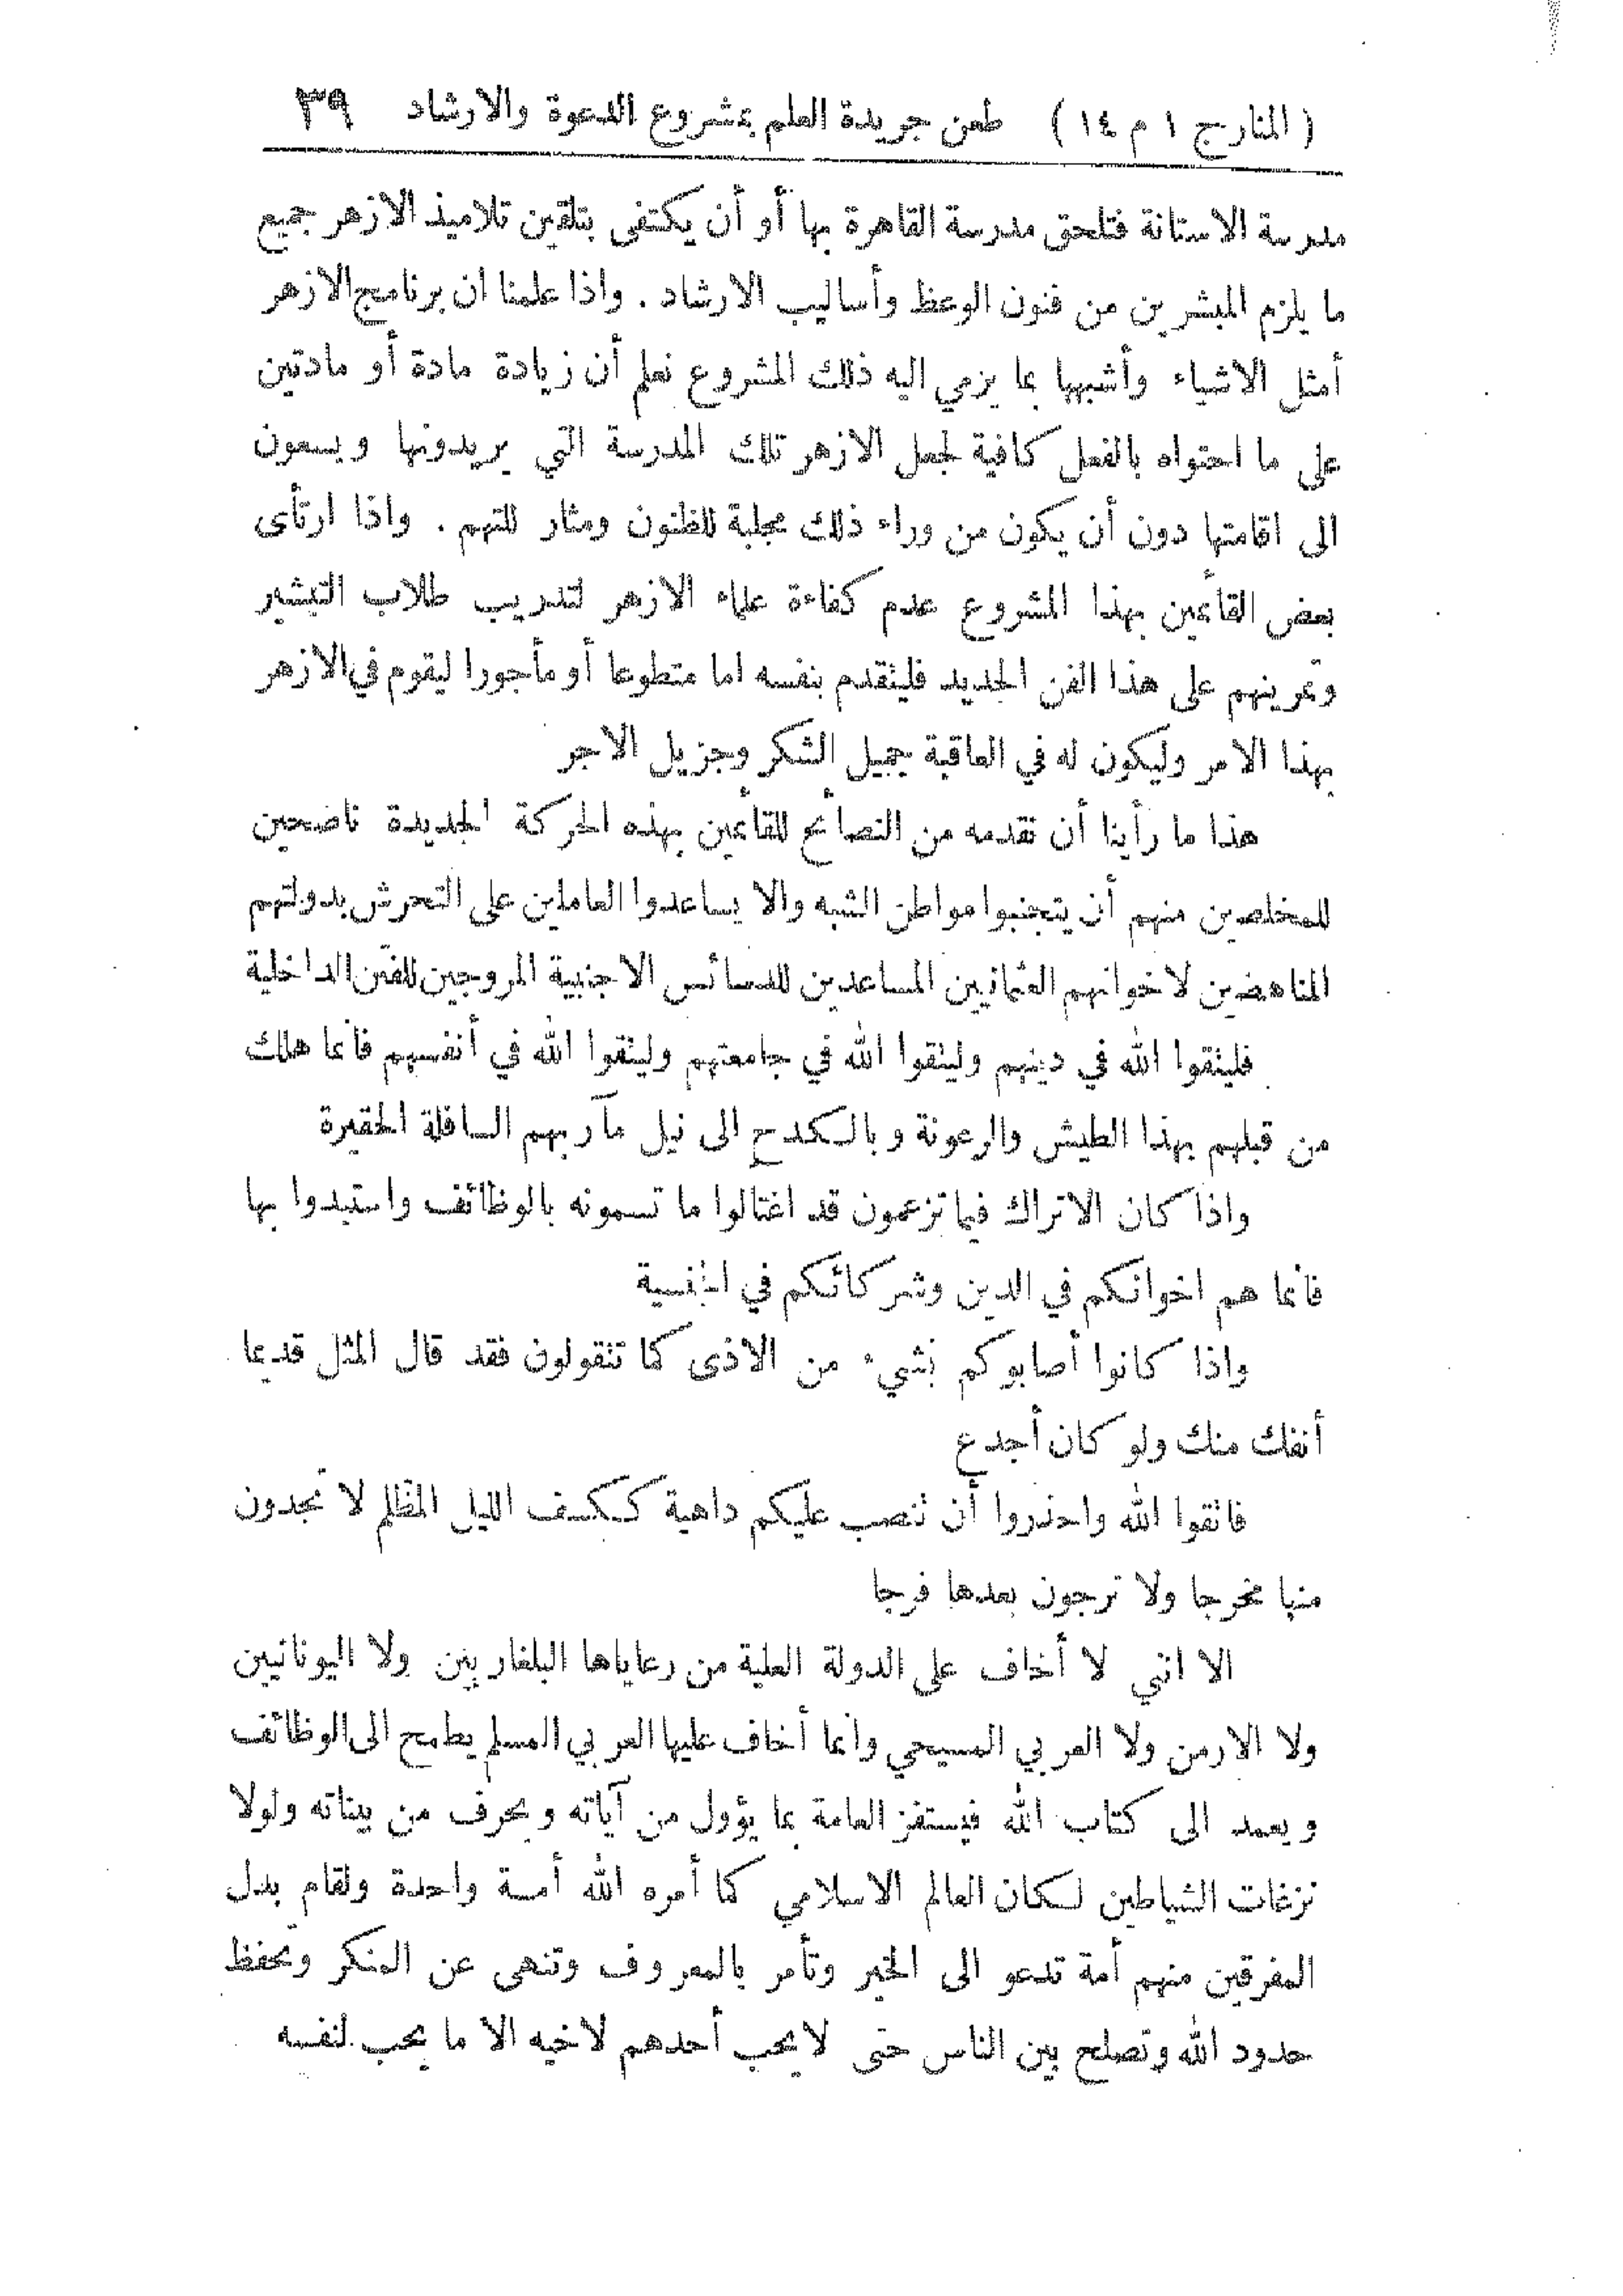 ( المنار ج ١ م ١٤ ) طعن جريدة العلم بمشروع الدعوة والارشاد ٣٩
مدرسة الاستانة فتلحق مدرسة القاهرة بها أو أن يكتفى بتلقين تلاميذ الازهر جميع
ما يلزم المبشرين من فنون الوعظ وأساليب الارشاد . واذا علمنا ان برنامج الازهر
أمثل الاشياء وأشبهها بما يرمي اليه ذلك المشروع نعلم أن زيادة مادة أو مادتين
على ما احتواه بالفعل كافية لجعل الازهر تلك المدرسة التي يريدونها ويسعون
الى اقامتها دون أن يكون من وراء ذلك مجلبة للظنون ومثار للتهم . واذا ارتأى
بعض القائمين بهذا المشروع عدم كفاءة علماء الازهر لتدريب طلاب التبشير
وتمرينهم على هذا الفن الجديد فليتقدم بنفسه اما متطوعا أو مأجورا ليقوم في الازهر
بهذا الامر وليكون له في العاقبة جميل الشكر وجزيل الاجر
هذا ما رأينا أن نقدمه من النصائح للقائمين بهذه الحركة الجديدة ناصحين
للمخلصين منهم أن يتجنبوا مواطن الشبه والا يساعدوا العاملين على التحرش بدولتهم
المناهضين لاخوانهم العثمانيين المساعدين للدسائس الاجنبية المروجين للفتن الداخلية
فليتقوا الله في دينهم وليتقوا الله في جامعتهم وليتقوا الله في أنفسهم فانما هلك
من قبلهم بهذا الطيش والرعونة وبالكدح الى نيل مآربهم السافلة الحقيرة
واذا كان الاتراك فيما تزعمون قد اغتالوا ما تسمونه بالوظائف واستبدوا بها
فانما هم اخوانكم في الدين وشركائكم في الجنسية
واذا كانوا أصابوكم بشيء من الاذى كما تتقولون فقد قال المثل قديما
أنفك منك ولو كان أجدع
فاتقوا الله واحذروا أن تنصب عليكم داهية ككسف الليل المظلم لا تجدون
منها مخرجا ولا ترجون بعدها فرجا
الا انني لا أخاف على الدولة العلية من رعاياها البلغاريين ولا اليونانيين
ولا الارمن ولا العربي المسيحي وانما أخاف عليها العربي المسلم يطمح الى الوظائف
ويعمد الى كتاب الله فيستفز العامة بما يؤول من آياته ويحرف من بيناته ولولا
نزغات الشياطين لكان العالم الاسلامي كما أمره الله أمة واحدة ولقام بدل
المفرقين منهم أمة تدعو الى الخير وتأمر بالمعروف وتنهى عن المنكر وتحفظ
حدود الله وتصلح بين الناس حتى لا يحب أحدهم لاخيه الا ما يحب لنفسه